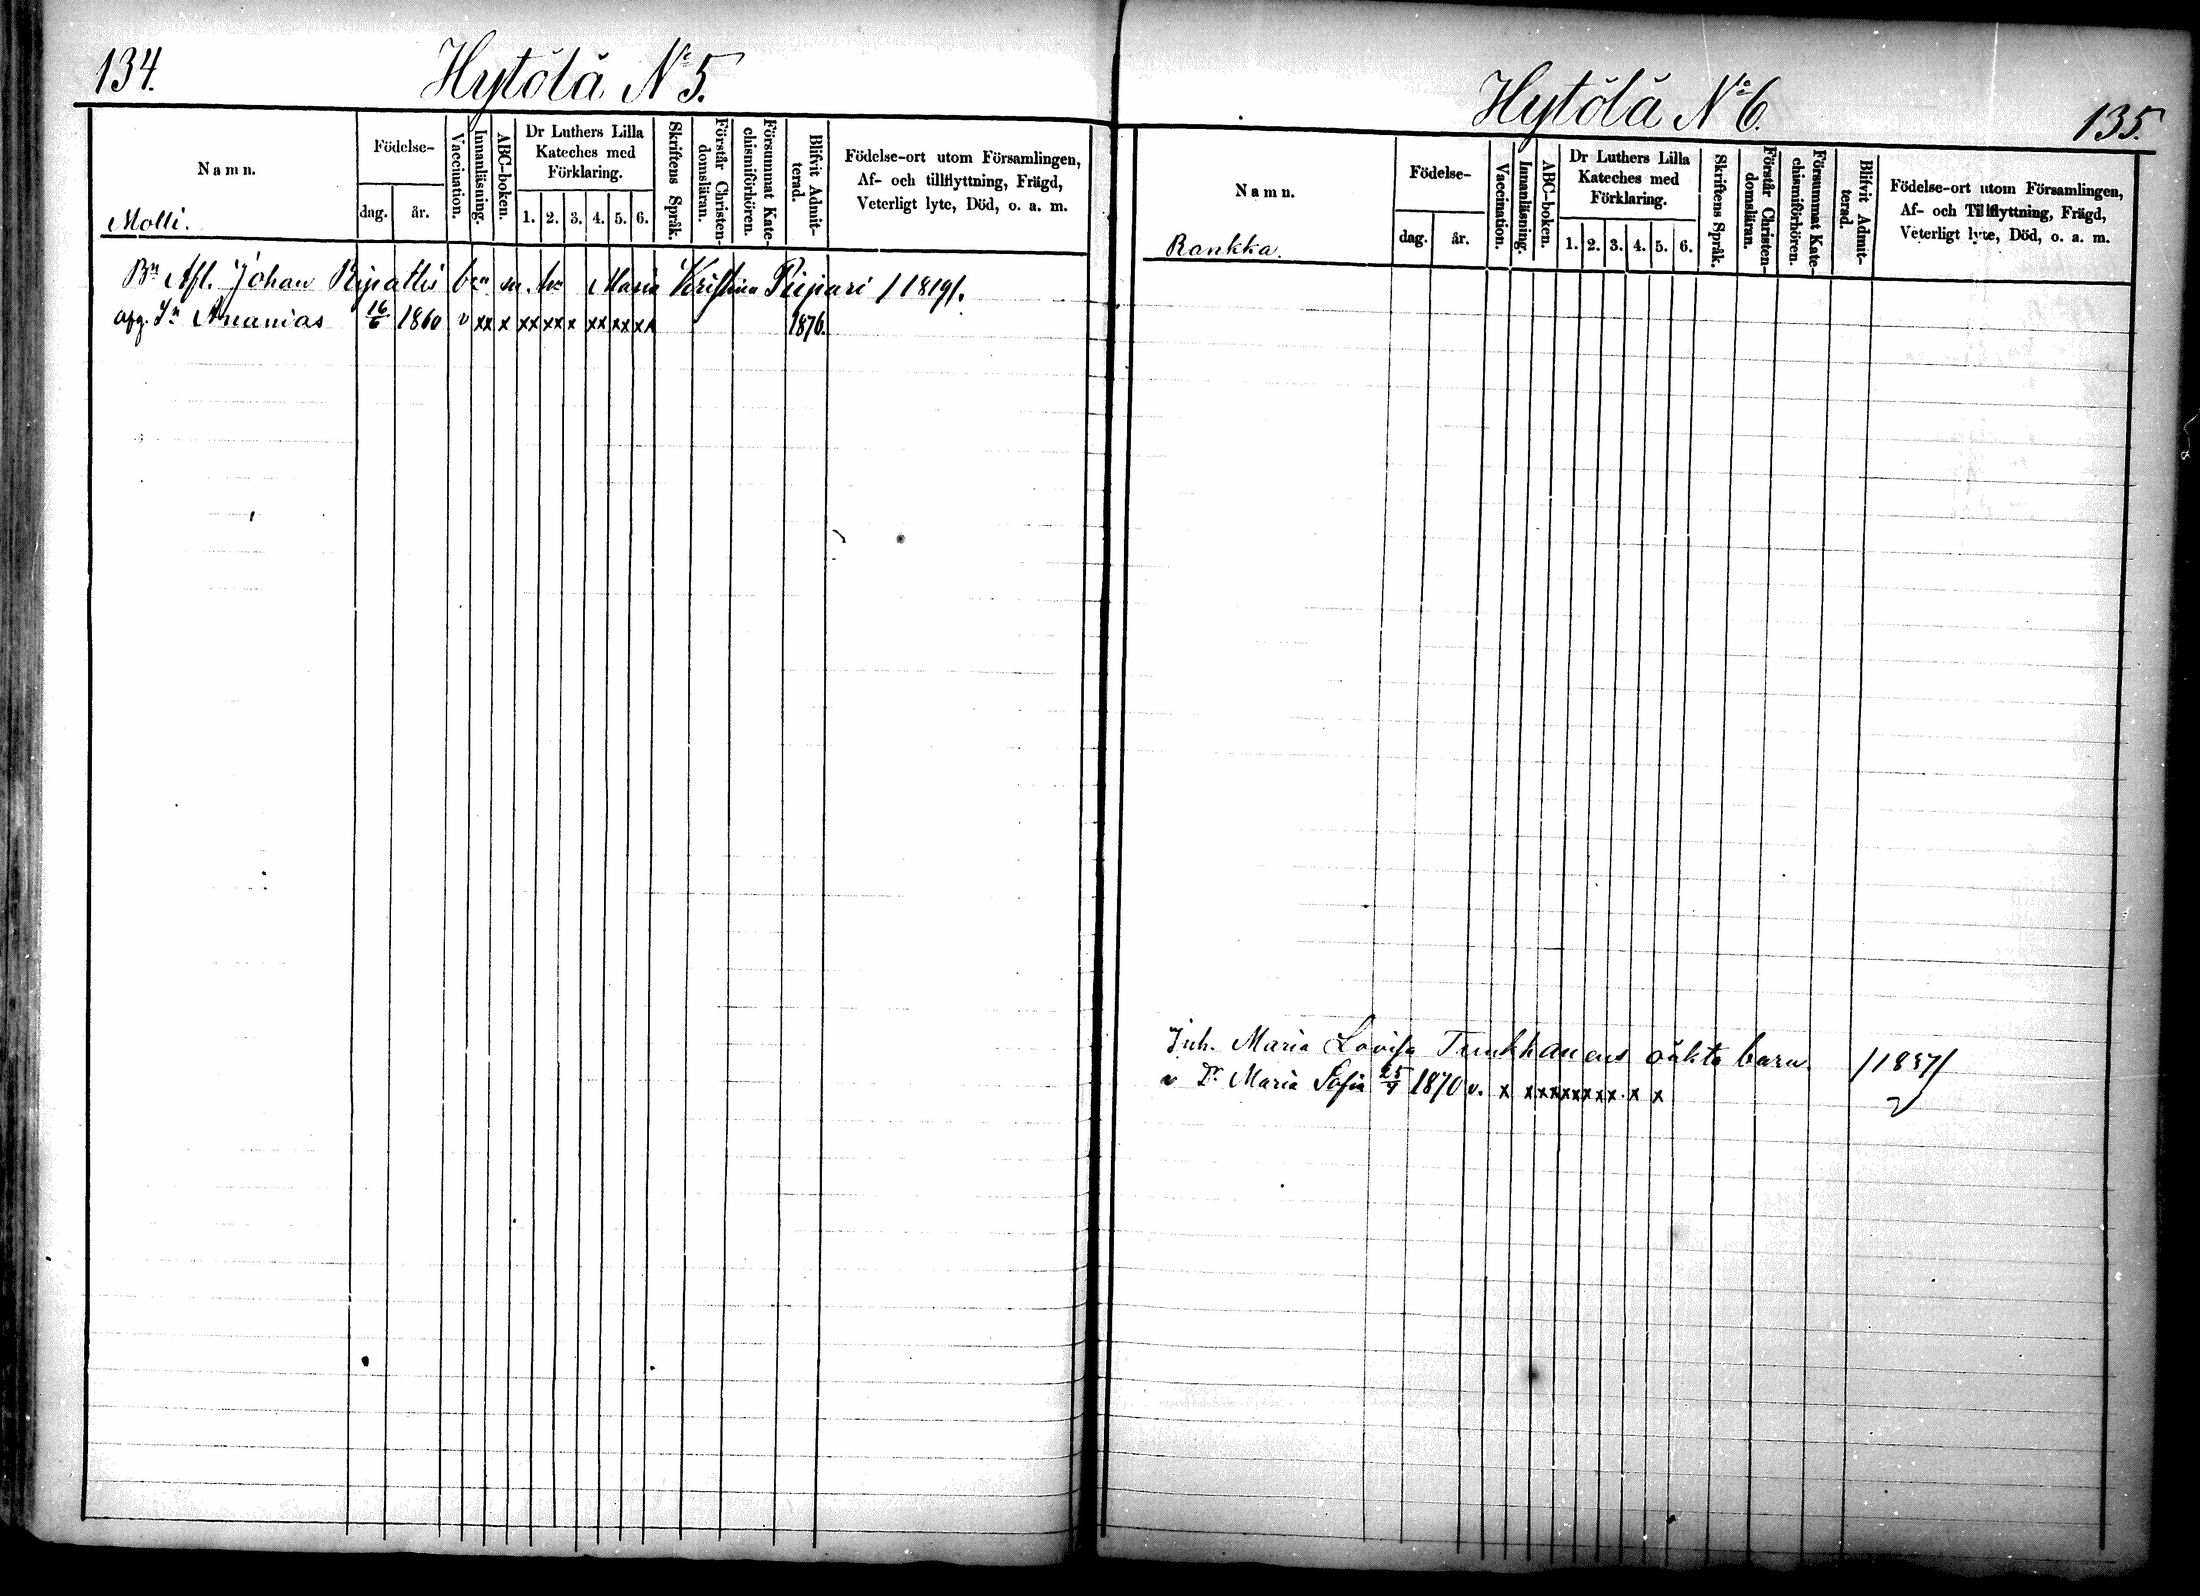 134.
Hytölä N:o 5.
Namn.
Födelse-
dag.
år.
Vaccination.
Innanläsning.
ABC-boken.
Dr Luthers Lilla
Kateches med
Förklaring.
1. 2. 3. 4. 5. 6.
Skriftens Språk.
Förstår Christen-
domsläran.
Försummat Kate-
chismiförhören.
Blifvit Admit-
terad.
Födelse-ort utom Församlingen,
Af- och tillflyttning, Frägd,
Veterligt lyte, Död, o. a. m.
Molli.
Bn Afl. Johan brn m. hu Maria Kristina Piipari /1819/.
Sn Ananias 16/6 1860 v xx x xx xx x xx xx xx 1876.
Hytölä No 6.
135.
Namn.
Födelse-
dag.
år.
Vaccination.
Innanläsning.
ABC-boken.
Dr Luthers Lilla
Kateches med
Förklaring.
1. 2. 3. 4. 5. 6.
Skriftens Språk.
Förstår Christen-
domsläran.
Försummat Kate-
chismiförhören.
Blifvit Admit-
terad.
Födelse-ort utom Församlingen,
Af- och Tillflyttning, Frägd,
Veterligt lyte, Död, o. a. m.
Rankka.
Inh. Maria Lovisa Tunkkanens oäkta barn /1837/
v Dr Maria Sofia 1870 v. x x x x x x x x x . x x